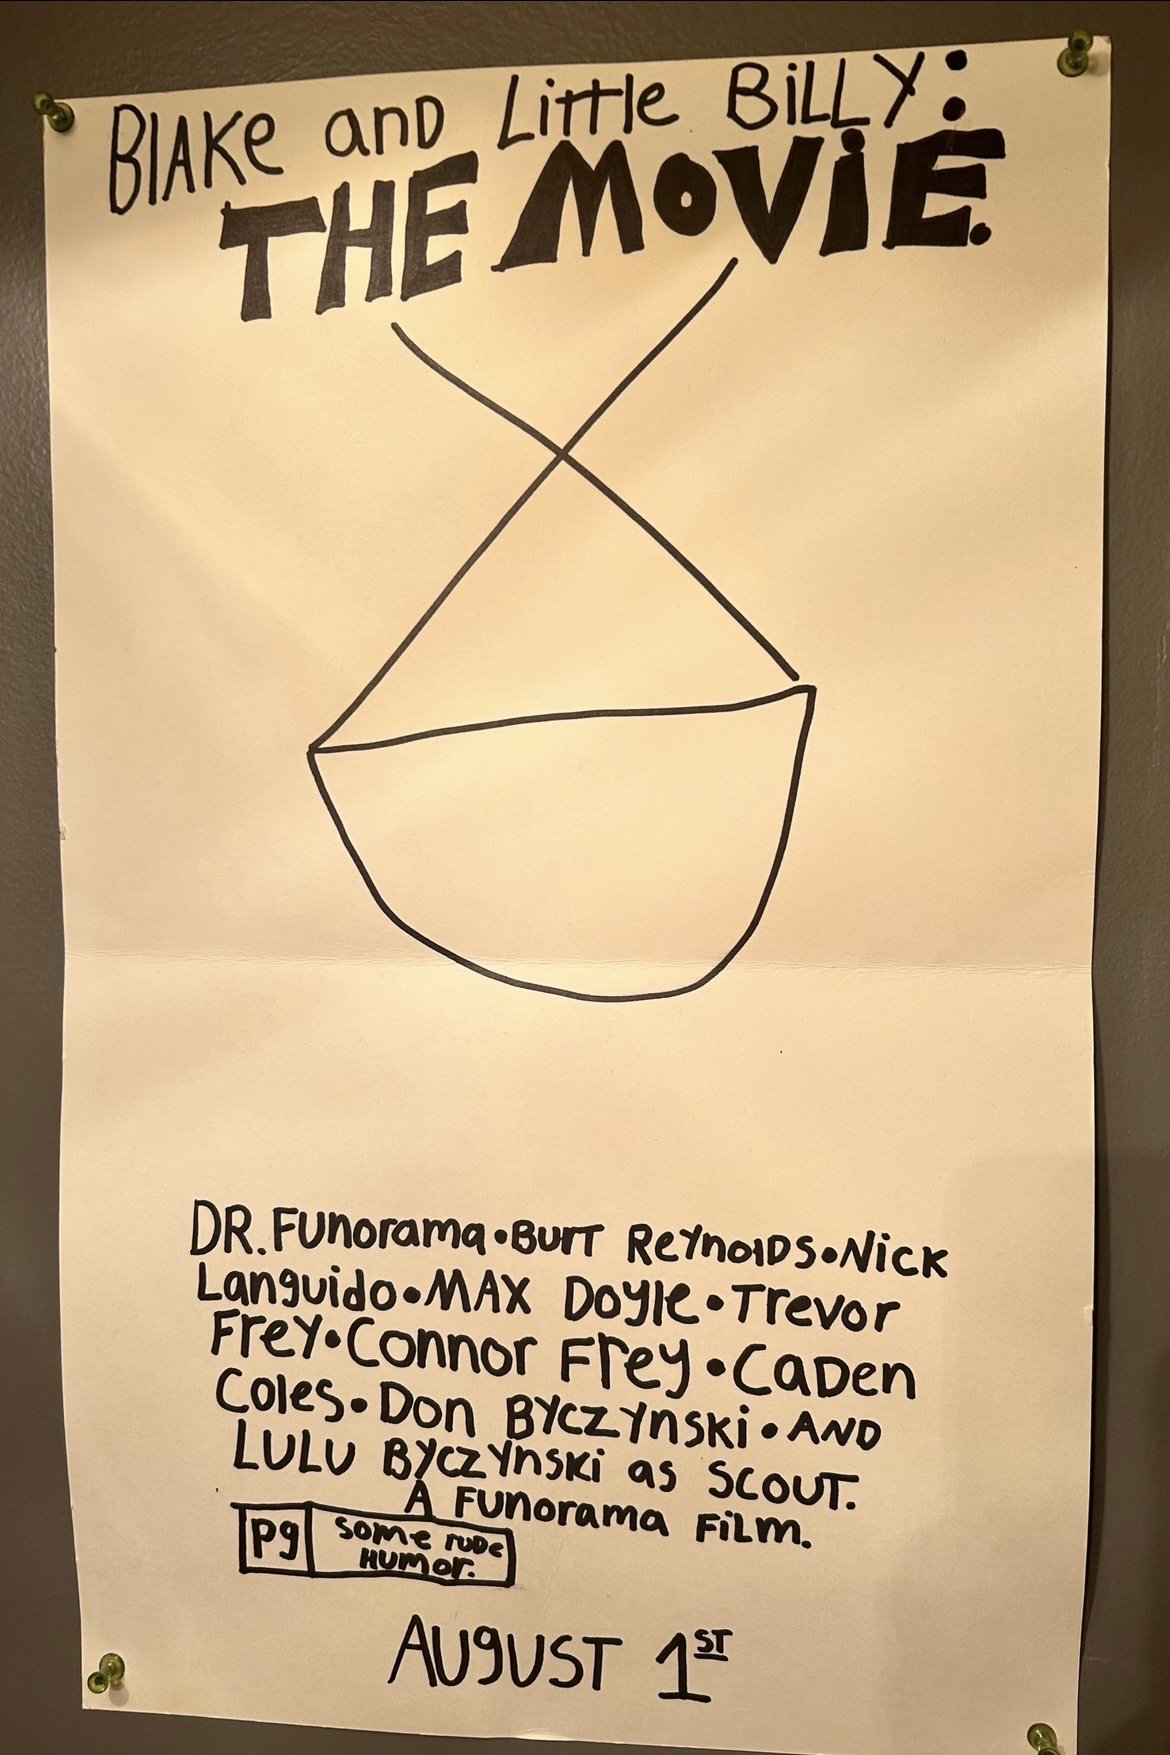 BlAKe and Little BiLLY:
THE MOViE.
DR. FUnorama • BURT ReYnolDS • Nick
Languido • MAX Doyle • Trevor
FreY • Connor Frey • CaDen
Coles • Don BYCZYnSki • AND
LULU BYCZYnSKi as SCOUT.
A FUnorama FiLm.
Pg some ruDe
HUmor.
AUgUST 1ST